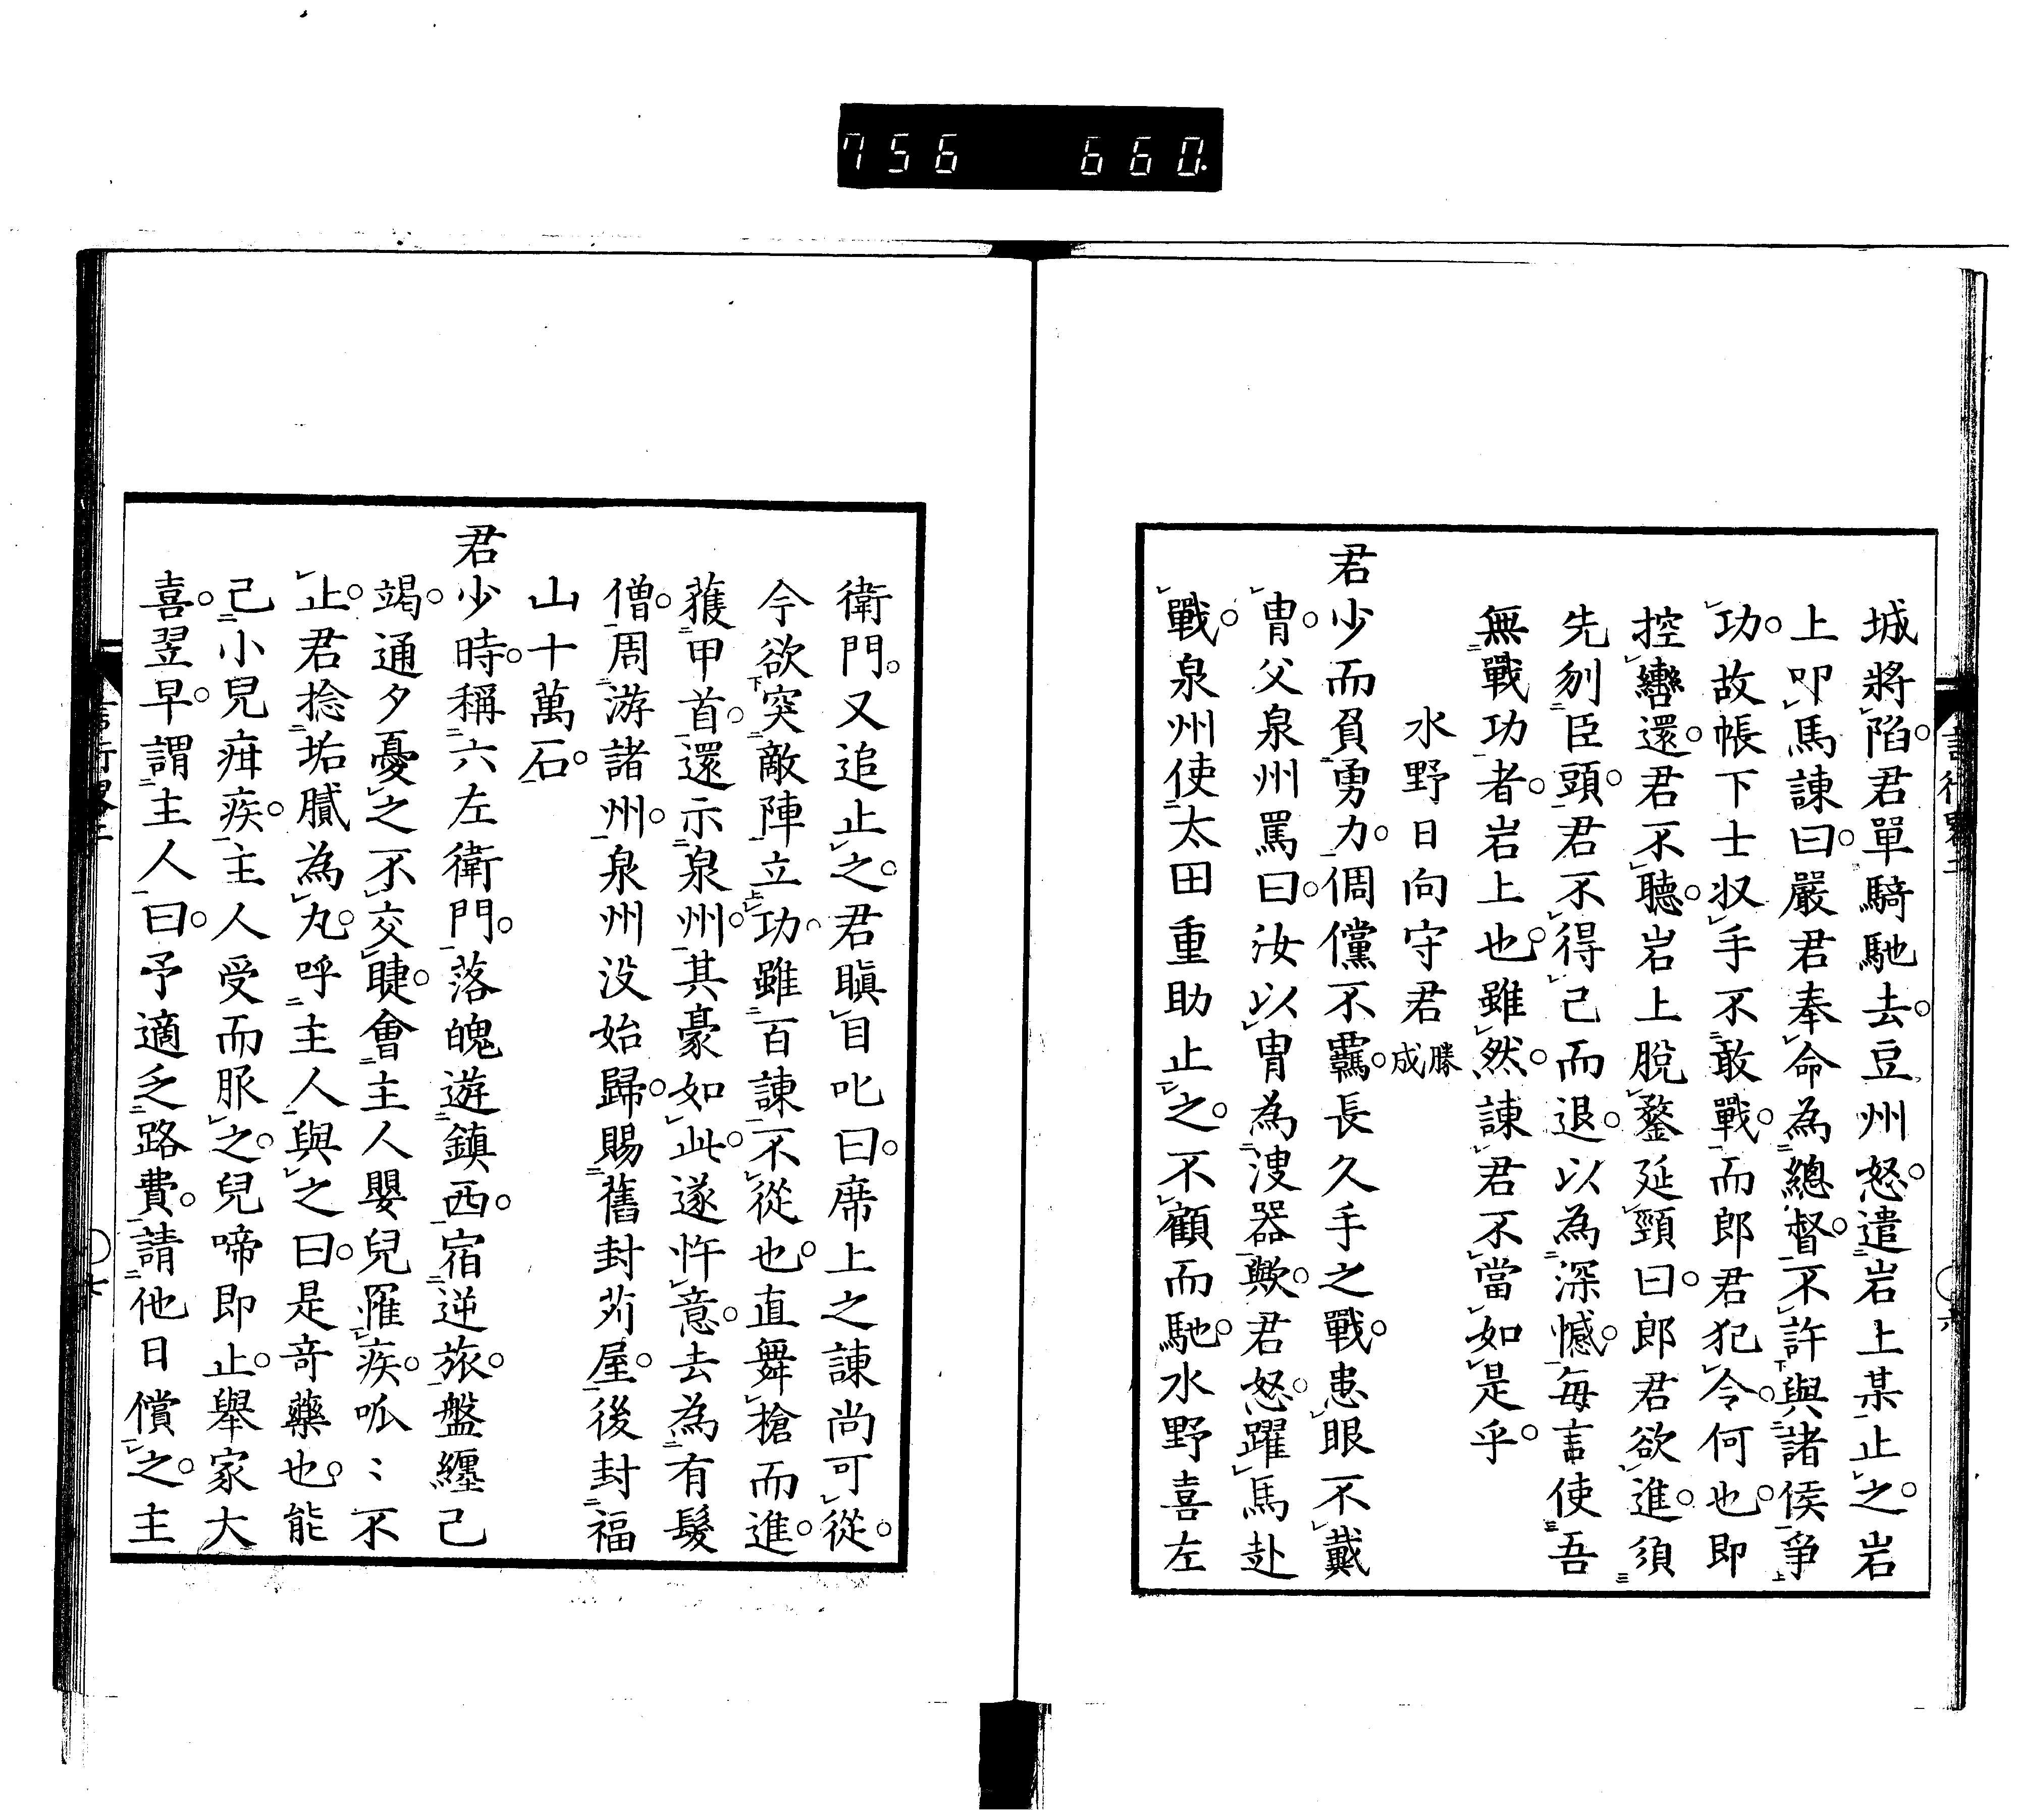 756 660.
城將陷君單騎馳去豆州怒遣岩上某止之岩
上叩馬諌曰嚴君奉命為總督不許與諸侯爭
功故帳下士収手不敢戰而郎君犯令何也即
控轡還君不聽岩上脫鍪延頸曰郎君欲進須
先刎臣頭君不得已而退以為深憾每言使吾
無戰功者岩上也雖然諌君不當如是乎
水野日向守君 勝成
君少而負勇力倜儻不羈長久手之戰患眼不戴
冑父泉州罵曰汝以冑為溲器歟君怒躍馬赴
戰泉州使太田重助止之不顧而馳水野喜左
衛門又追止之君瞋目叱曰席上之諌尚可從
今欲突敵陣立功雖百諌不從也直舞槍而進
獲甲首還示泉州其豪如此遂忤意去為有髮
僧周游諸州泉州没始歸賜舊封苅屋後封福
山十萬石
君少時稱六左衛門落魄遊鎮西宿逆旅盤纏已
竭通夕憂之不交睫會主人嬰兒罹疾呱〻不
止君捻垢膩為丸呼主人與之曰是竒藥也能
已小兒疳疾主人受而服之兒啼即止舉家大
喜翌早謂主人曰予適乏路費請他日償之主